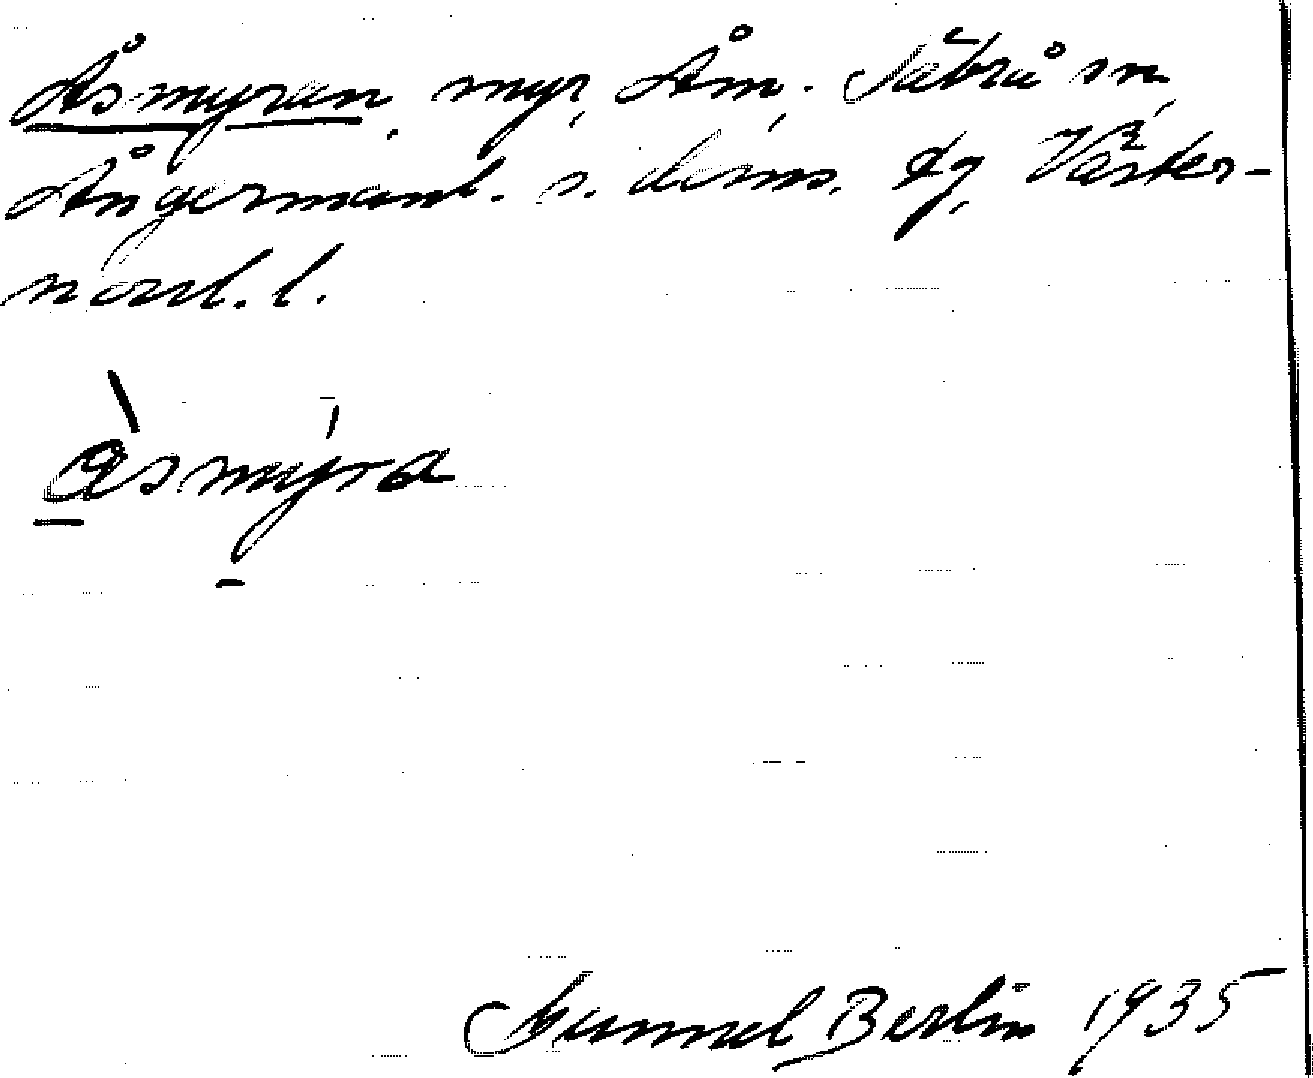 Åsmyran, myr, Åm. Säbrå sn,
Ångermanl. s. doms. fg, Väster-
norrl. l.
Åsmyra
Gunnel Berlin 1935